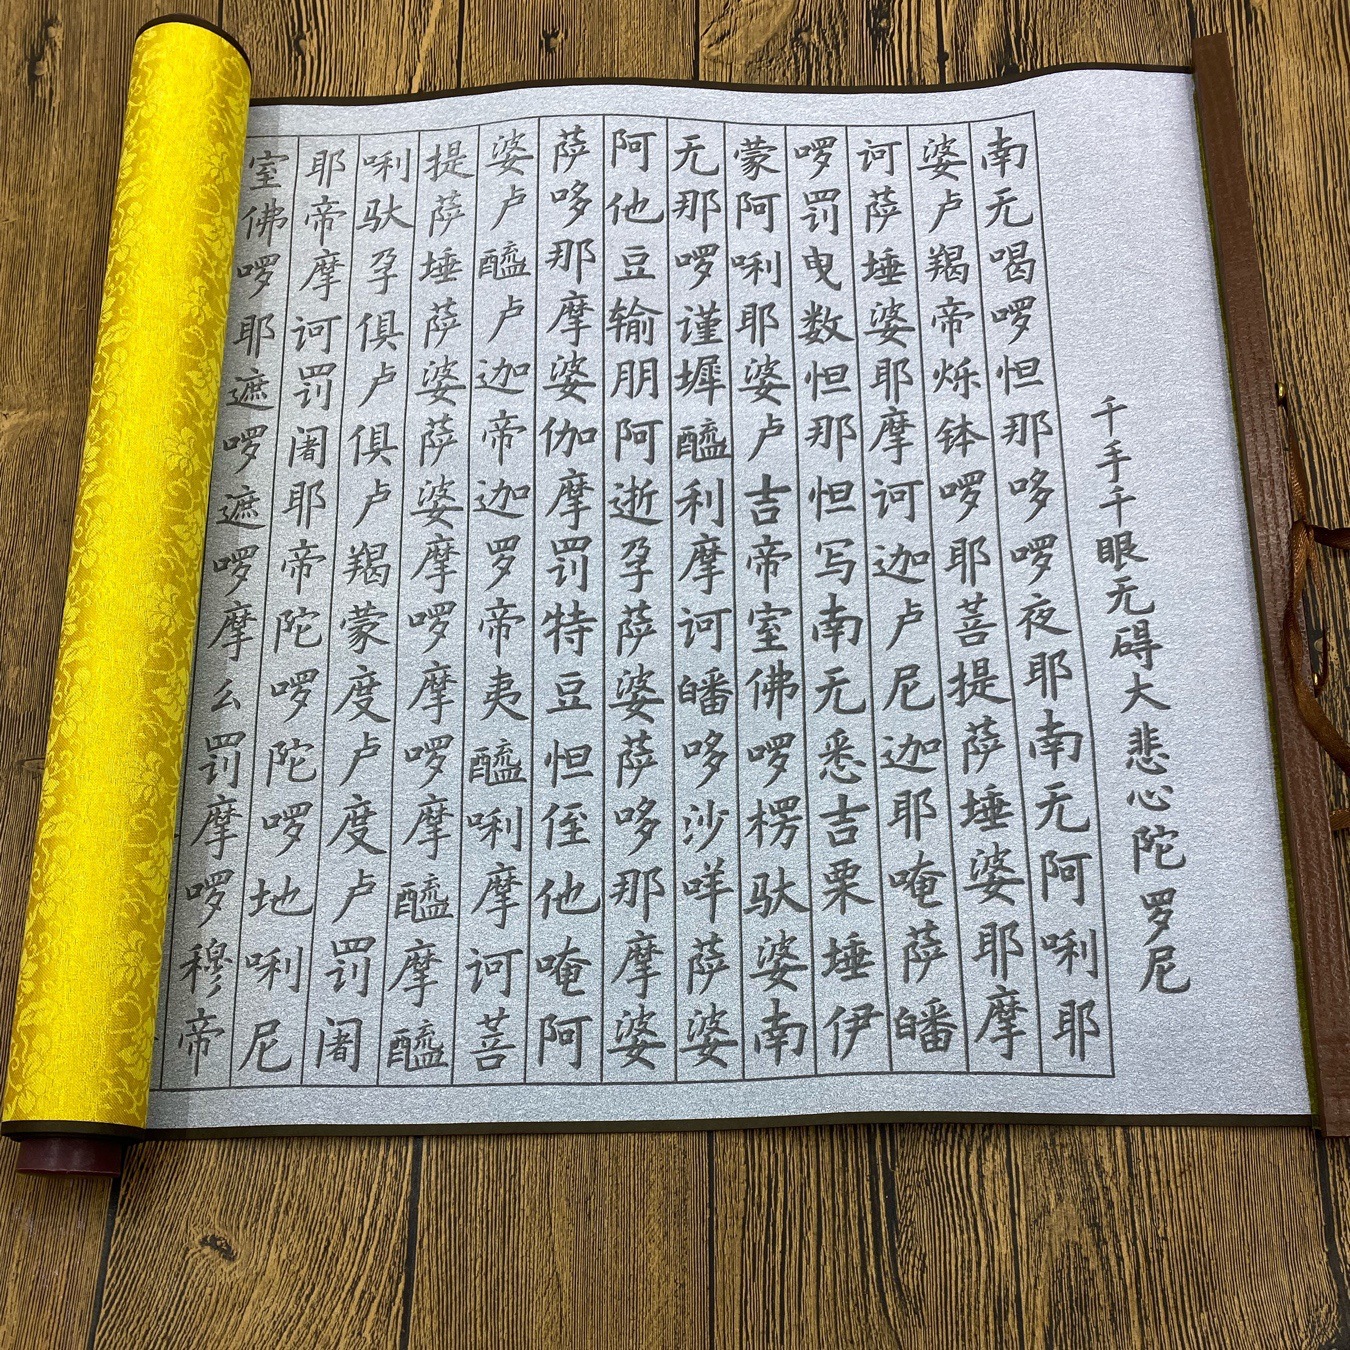 千手千眼无碍大悲心陀罗尼
南无喝啰怛那哆啰夜耶南无阿唎耶
婆卢羯帝烁钵啰耶菩提萨埵婆耶摩
诃萨埵婆耶摩诃迦卢尼迦耶唵萨皤
啰罚曳数怛那怛写南无悉吉栗埵伊
蒙阿唎耶婆卢吉帝室佛啰楞驮婆南
无那啰谨墀醯利摩诃皤哆沙咩萨婆
阿他豆输朋阿逝孕萨婆萨哆那摩婆
萨哆那摩婆伽摩罚特豆怛侄他唵阿
婆卢醯卢迦帝迦罗帝夷醯唎摩诃菩
提萨埵萨婆萨婆摩啰摩啰摩醯摩醯
唎驮孕俱卢俱卢羯蒙度卢度卢罚阇
耶帝摩诃罚阇耶帝陀啰陀啰地唎尼
室佛啰耶遮啰遮啰摩么罚摩啰穆帝